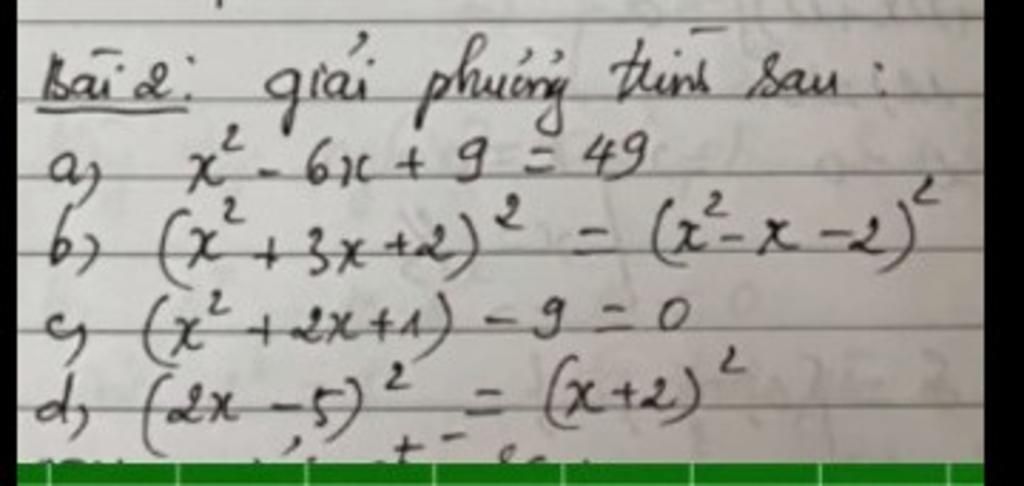 Bài 2: giải phương trình sau:
a) x² - 6x + 9 = 49
b) (x² + 3x + 2)² = (x² - x - 2)²
c) (x² + 2x + 1) - 9 = 0
d) (2x - 5)² = (x + 2)²